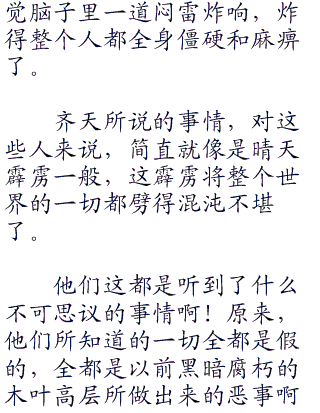 觉脑子里一道闷雷炸响，炸
得整个人都全身僵硬和麻痹
了。
齐天所说的事情，对这
些人来说，简直就像是晴天
霹雳一般，这霹雳将整个世
界的一切都劈得混沌不堪
了。
他们这都是听到了什么
不可思议的事情啊！原来，
他们所知道的一切全都是假
的，全都是以前黑暗腐朽的
木叶高层所做出来的恶事啊